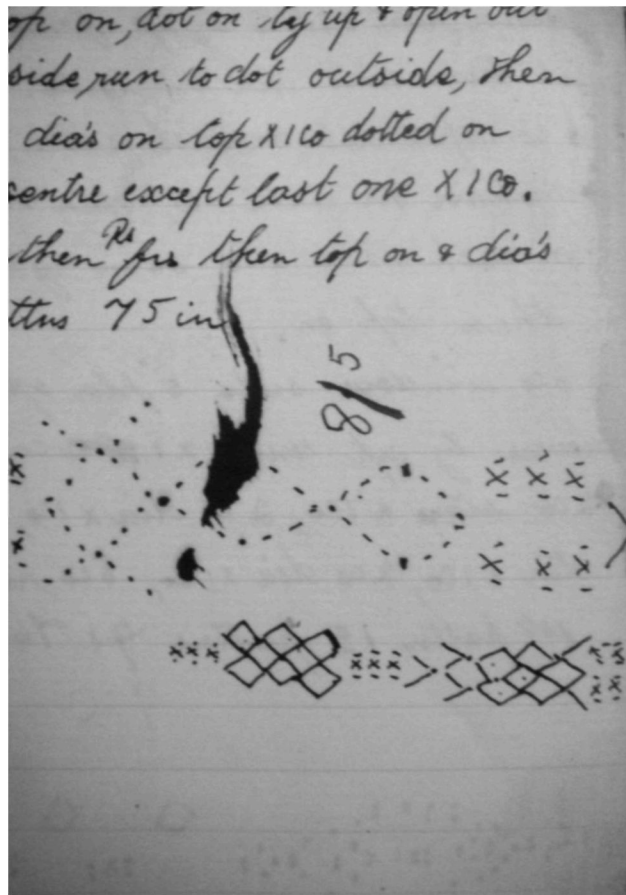 top on, dot on ly up & open out
side, run to dot outside, then
dia's on top X 1 co dotted on
centre except last one X 1 co.
then Rs fus then top on & dia's
ttns 75 in
8/5